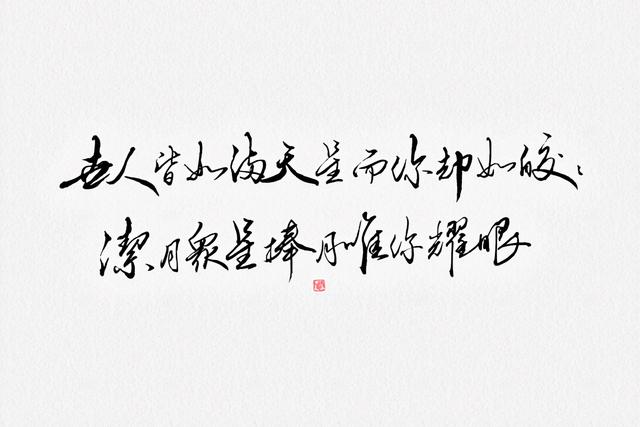 世人皆如满天星而你却如皎皎
潔月眾星捧月唯你耀眼